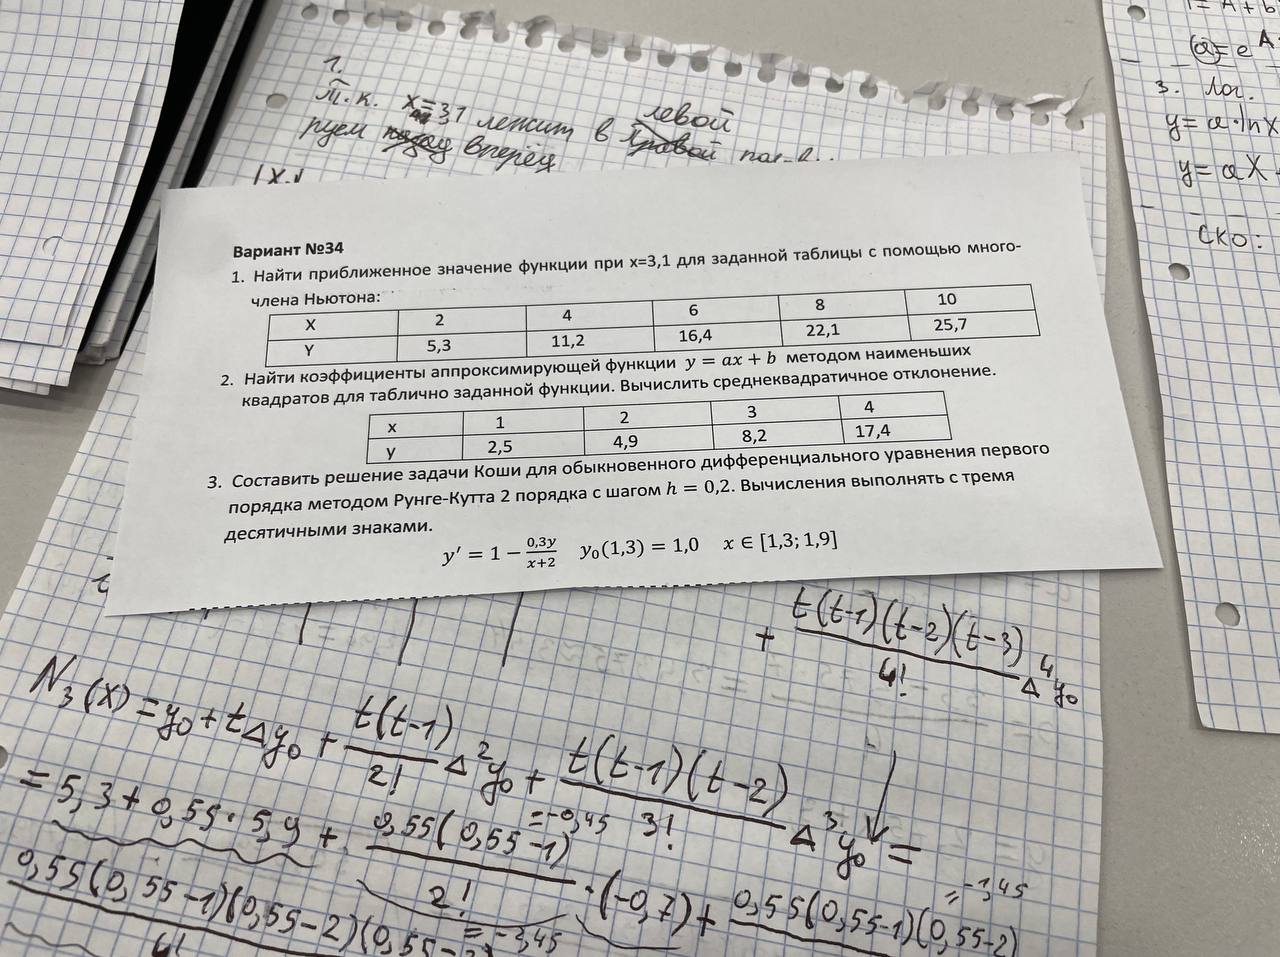 1.
Т.к. x=3,1 лежит в левой
руем вперёд
Вариант №34
1. Найти приближенное значение функции при x=3,1 для заданной таблицы с помощью много-
члена Ньютона:
X 2 4 6 8 10
Y 5,3 11,2 16,4 22,1 25,7
2. Найти коэффициенты аппроксимирующей функции y = ax + b методом наименьших
квадратов для таблично заданной функции. Вычислить среднеквадратичное отклонение.
x 1 2 3 4
y 2,5 4,9 8,2 17,4
3. Составить решение задачи Коши для обыкновенного дифференциального уравнения первого
порядка методом Рунге-Кутта 2 порядка с шагом h = 0,2. Вычисления выполнять с тремя
десятичными знаками.
y′ = 1 − 0,3y/x+2 y₀(1,3) = 1,0 x ∈ [1,3; 1,9]
+ t(t-1)(t-2)(t-3)/4! Δ⁴y₀
N₃(x) = y₀ + tΔy₀ + t(t-1)/2! Δ²y₀ + t(t-1)(t-2)/3! Δ³y₀ =
= 5,3 + 0,55 · 5,9 + 0,55(0,55-1)/2! · (-0,7) + 0,55(0,55-1)(0,55-2)
=-0,45
=-1,45
0,55(0,55-1)(0,55-2)(0,55-
=-1,45
4!
3. Лог.
y = a·lnx
y = ax
СКО: